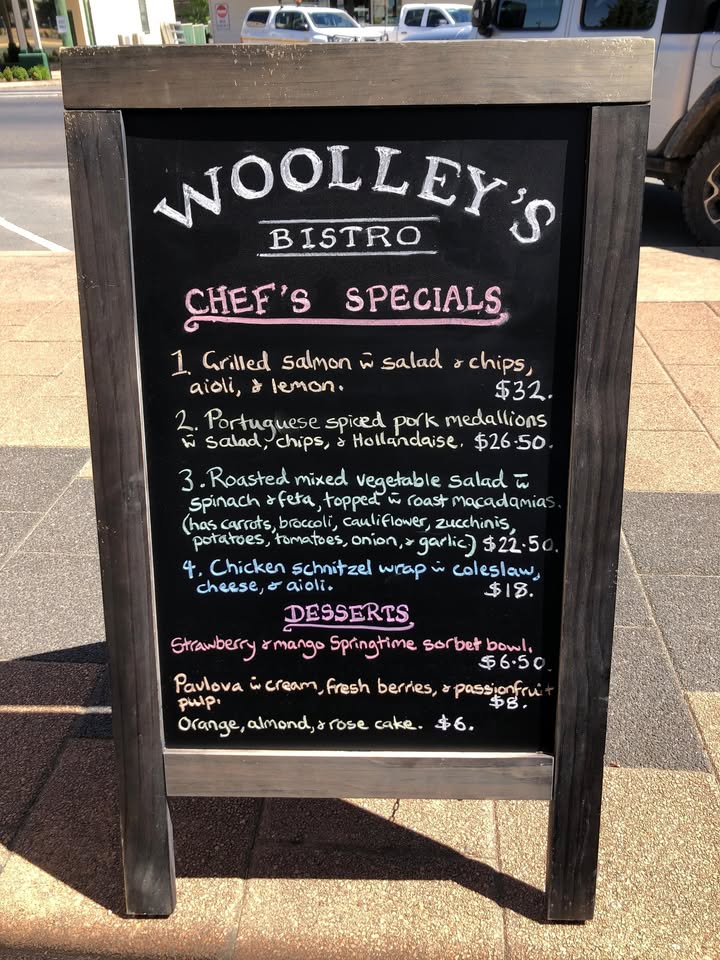 WOOLLEY'S
BISTRO
CHEF'S SPECIALS
1. Grilled salmon w̄ salad & chips,
aioli, & lemon. $32.
2. Portuguese spiced pork medallions
w̄ salad, chips, & Hollandaise. $26.50.
3. Roasted mixed vegetable salad w̄
spinach & feta, topped w̄ roast macadamias.
(has carrots, broccoli, cauliflower, zucchinis,
potatoes, tomatoes, onion, & garlic) $22.50.
4. Chicken schnitzel wrap w̄ coleslaw,
cheese, & aioli. $18.
DESSERTS
Strawberry & mango Springtime sorbet bowl.
$6.50.
Pavlova w̄ cream, fresh berries, & passionfruit
pulp. $8.
Orange, almond, & rose cake. $6.